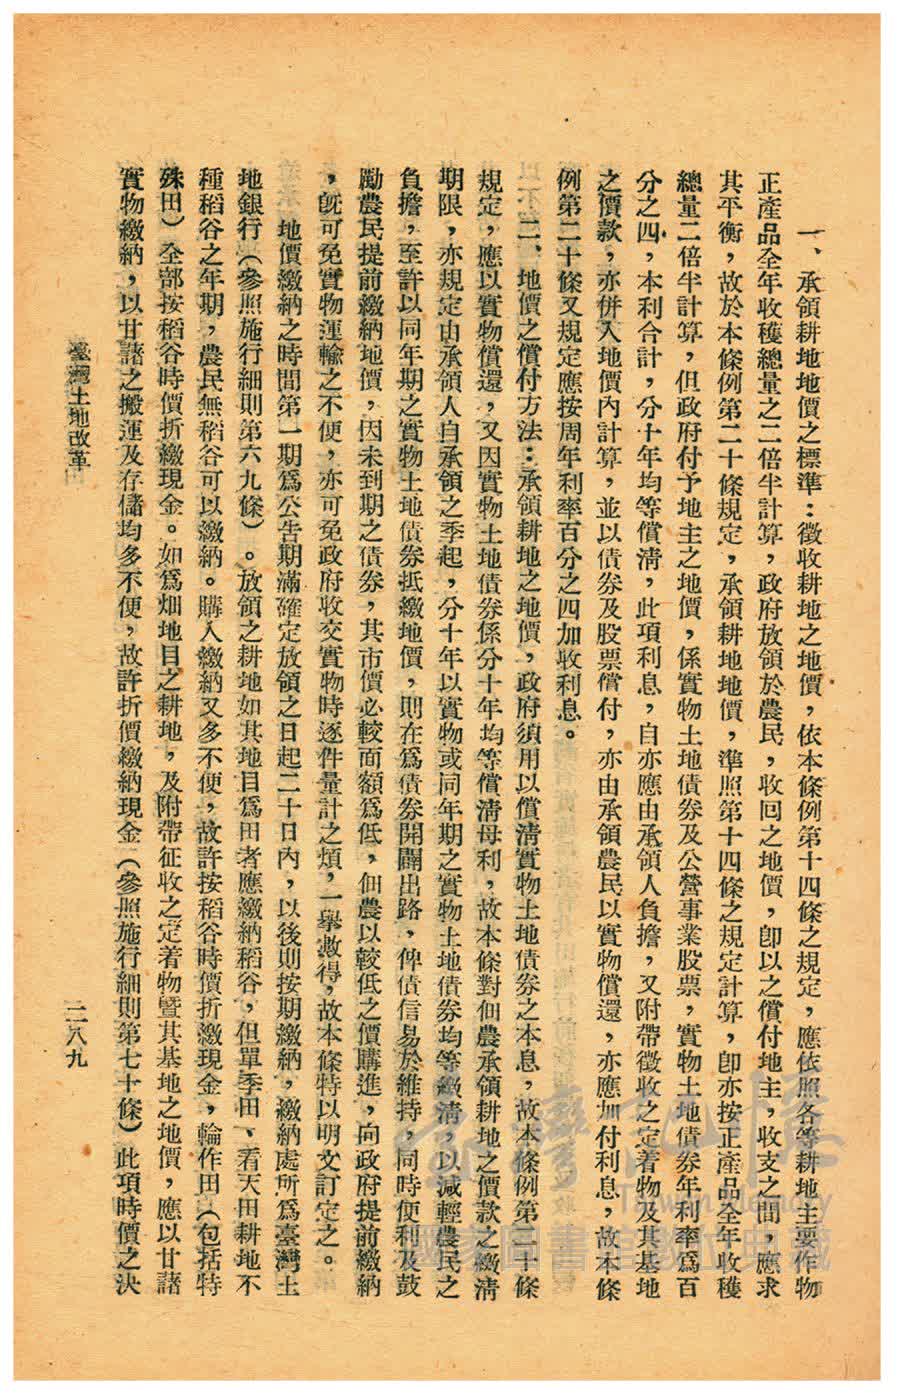 一、承領耕地地價之標準：徵收耕地之地價，依本條例第十四條之規定，應依照各等耕地主要作物
正產品全年收穫總量之二倍半計算，政府放領於農民，收回之地價，卽以之償付地主，收支之間，應求
其平衡，故於本條例第二十條規定，承領耕地地價，準照第十四條之規定計算，卽亦按正產品全年收穫
總量二倍半計算，但政府付予地主之地價，係實物土地債券及公營事業股票，實物土地債券年利率爲百
分之四，本利合計，分十年均等償淸，此項利息，自亦應由承領人負擔，又附帶徵收之定着物及其基地
之價款，亦併入地價內計算，並以債券及股票償付，亦由承領農民以實物償還，亦應加付利息，故本條
例第二十條又規定應按周年利率百分之四加收利息。
二、地價之償付方法：承領耕地之地價，政府須用以償淸實物土地債券之本息，故本條例第二十條
規定，應以實物償還，又因實物土地債券係分十年均等償淸母利，故本條對佃農承領耕地之價款之繳淸
期限，亦規定由承領人自承領之季起，分十年以實物或同年期之實物土地債券均等繳淸，以減輕農民之
負擔，至許以同年期之實物土地債券抵繳地價，則在爲債券開闢出路，俾債信易於維持，同時便利及鼓
勵農民提前繳納地價，因未到期之債券，其市價必較面額爲低，佃農以較低之價購進，向政府提前繳納
，旣可免實物運輸之不便，亦可免政府收交實物時逐件量計之煩，一擧數得，故本條特以明文訂定之。
地價繳納之時間第一期爲公告期滿確定放領之日起二十日內，以後則按期繳納，繳納處所爲臺灣土
地銀行（參照施行細則第六九條）。放領之耕地如其地目爲田者應繳納稻谷，但單季田、看天田耕地不
種稻谷之年期，農民無稻谷可以繳納。購入繳納又多不便，故許按稻谷時價折繳現金，輪作田（包括特
殊田）全部按稻谷時價折繳現金。如爲畑地目之耕地，及附帶征收之定着物曁其基地之地價，應以甘藷
實物繳納，以甘藷之搬運及存儲均多不便，故許折價繳納現金（參照施行細則第七十條）此項時價之決
臺灣土地改革
二八九
Taiwan Memory
國家圖書館數位典藏